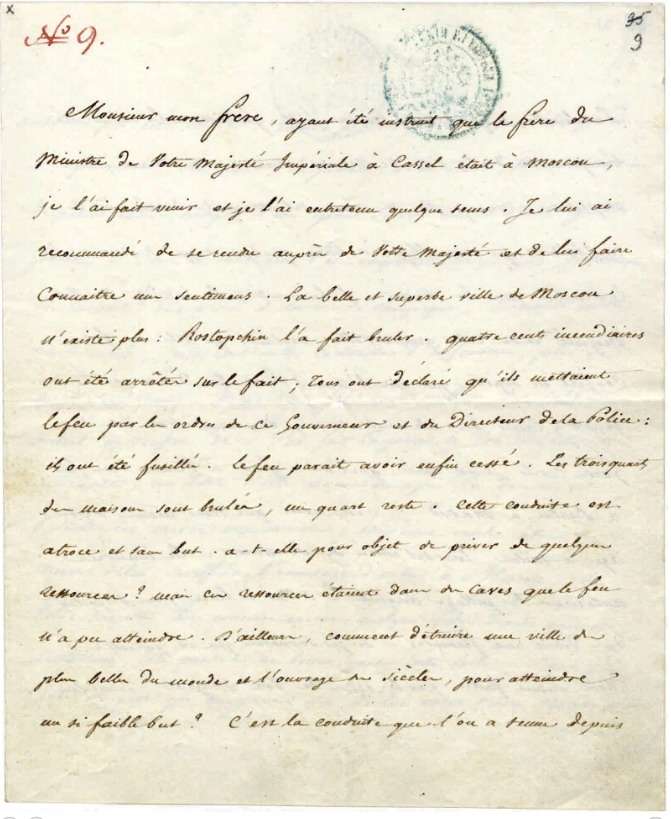 x
No 9.
95
9
Monsieur mon frere, ayant été instruit que le frère du
Ministre de Votre Majesté Impériale à Cassel était à Moscou,
je l'ai fait venir et je l'ai entretenu quelque tems. Je lui ai
recommandé de se rendre auprès de Votre Majesté et de lui faire
connaitre mes sentimens. La belle et superbe ville de Moscou
n'existe plus: Rostopchin l'a fait bruler. quatre cents incendiaires
ont été arrêtés sur le fait; Tous ont déclaré qu'ils mettaient
le feu par les ordres de ce Gouverneur et du Directeur de la Police:
ils ont été fusillés. le feu parait avoir enfin cessé. Les trois quarts
des maisons sont brulées, un quart reste. Cette conduite est
atroce et sans but. a-t-elle pour objet de priver de quelques
ressources? mais ces ressources étaient dans des caves que le feu
n'a pu atteindre. D'ailleurs, comment détruire une ville des
plus belles du monde et l'ouvrage des siècles, pour atteindre
un si faible but? C'est la conduite que l'on a tenue depuis